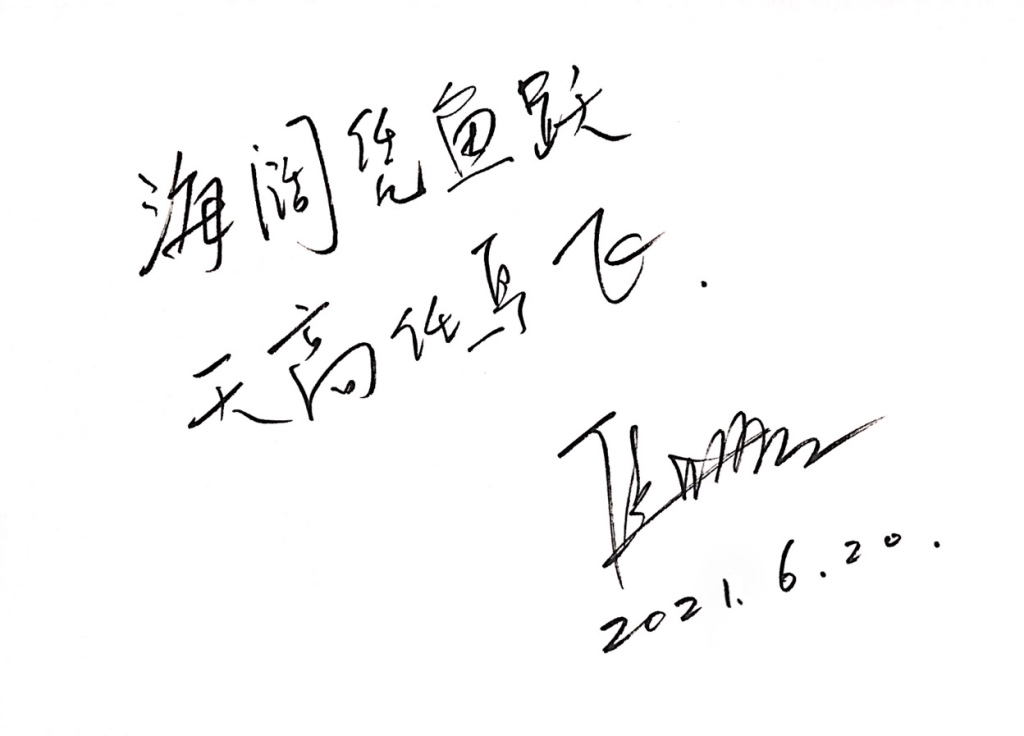 海阔凭鱼跃
天高任鸟飞.
2021.6.20.